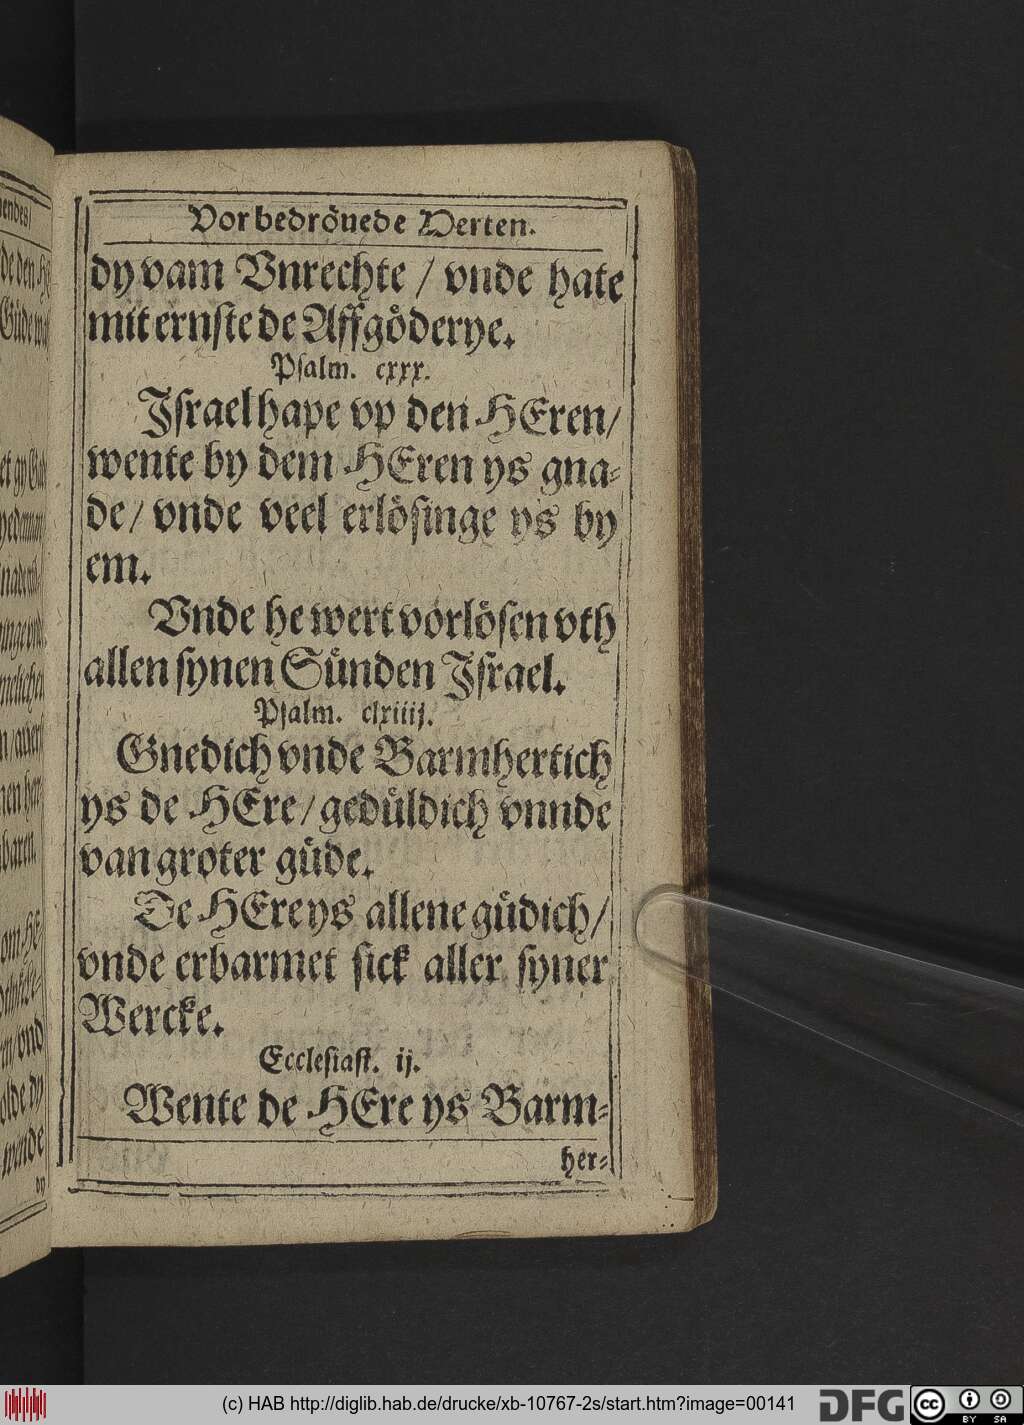 Vorbedröuede Herten.
dy vam Vnrechte / vnde hate
mit ernste de Affgöderye.
Psalm. cxxx.
Israel hape vp den HEren/
wente by dem HEren ys gna-
de / vnde veel erlösinge ys by
em.
Vnde he wert vorlösen vth
allen synen Sünden Israel.
Psalm. clxiiij.
Gnedich vnde Barmhertich
ys de HEre / gedüldich vnnde
van groter güde.
De HEre ys allene güdich/
vnde erbarmet sick aller syner
Wercke.
Ecclesiast. ij.
Wente de HEre ys Barm-
her-
(c) HAB http://diglib.hab.de/drucke/xb-10767-2s/start.htm?image=00141
DFG
cc BY SA